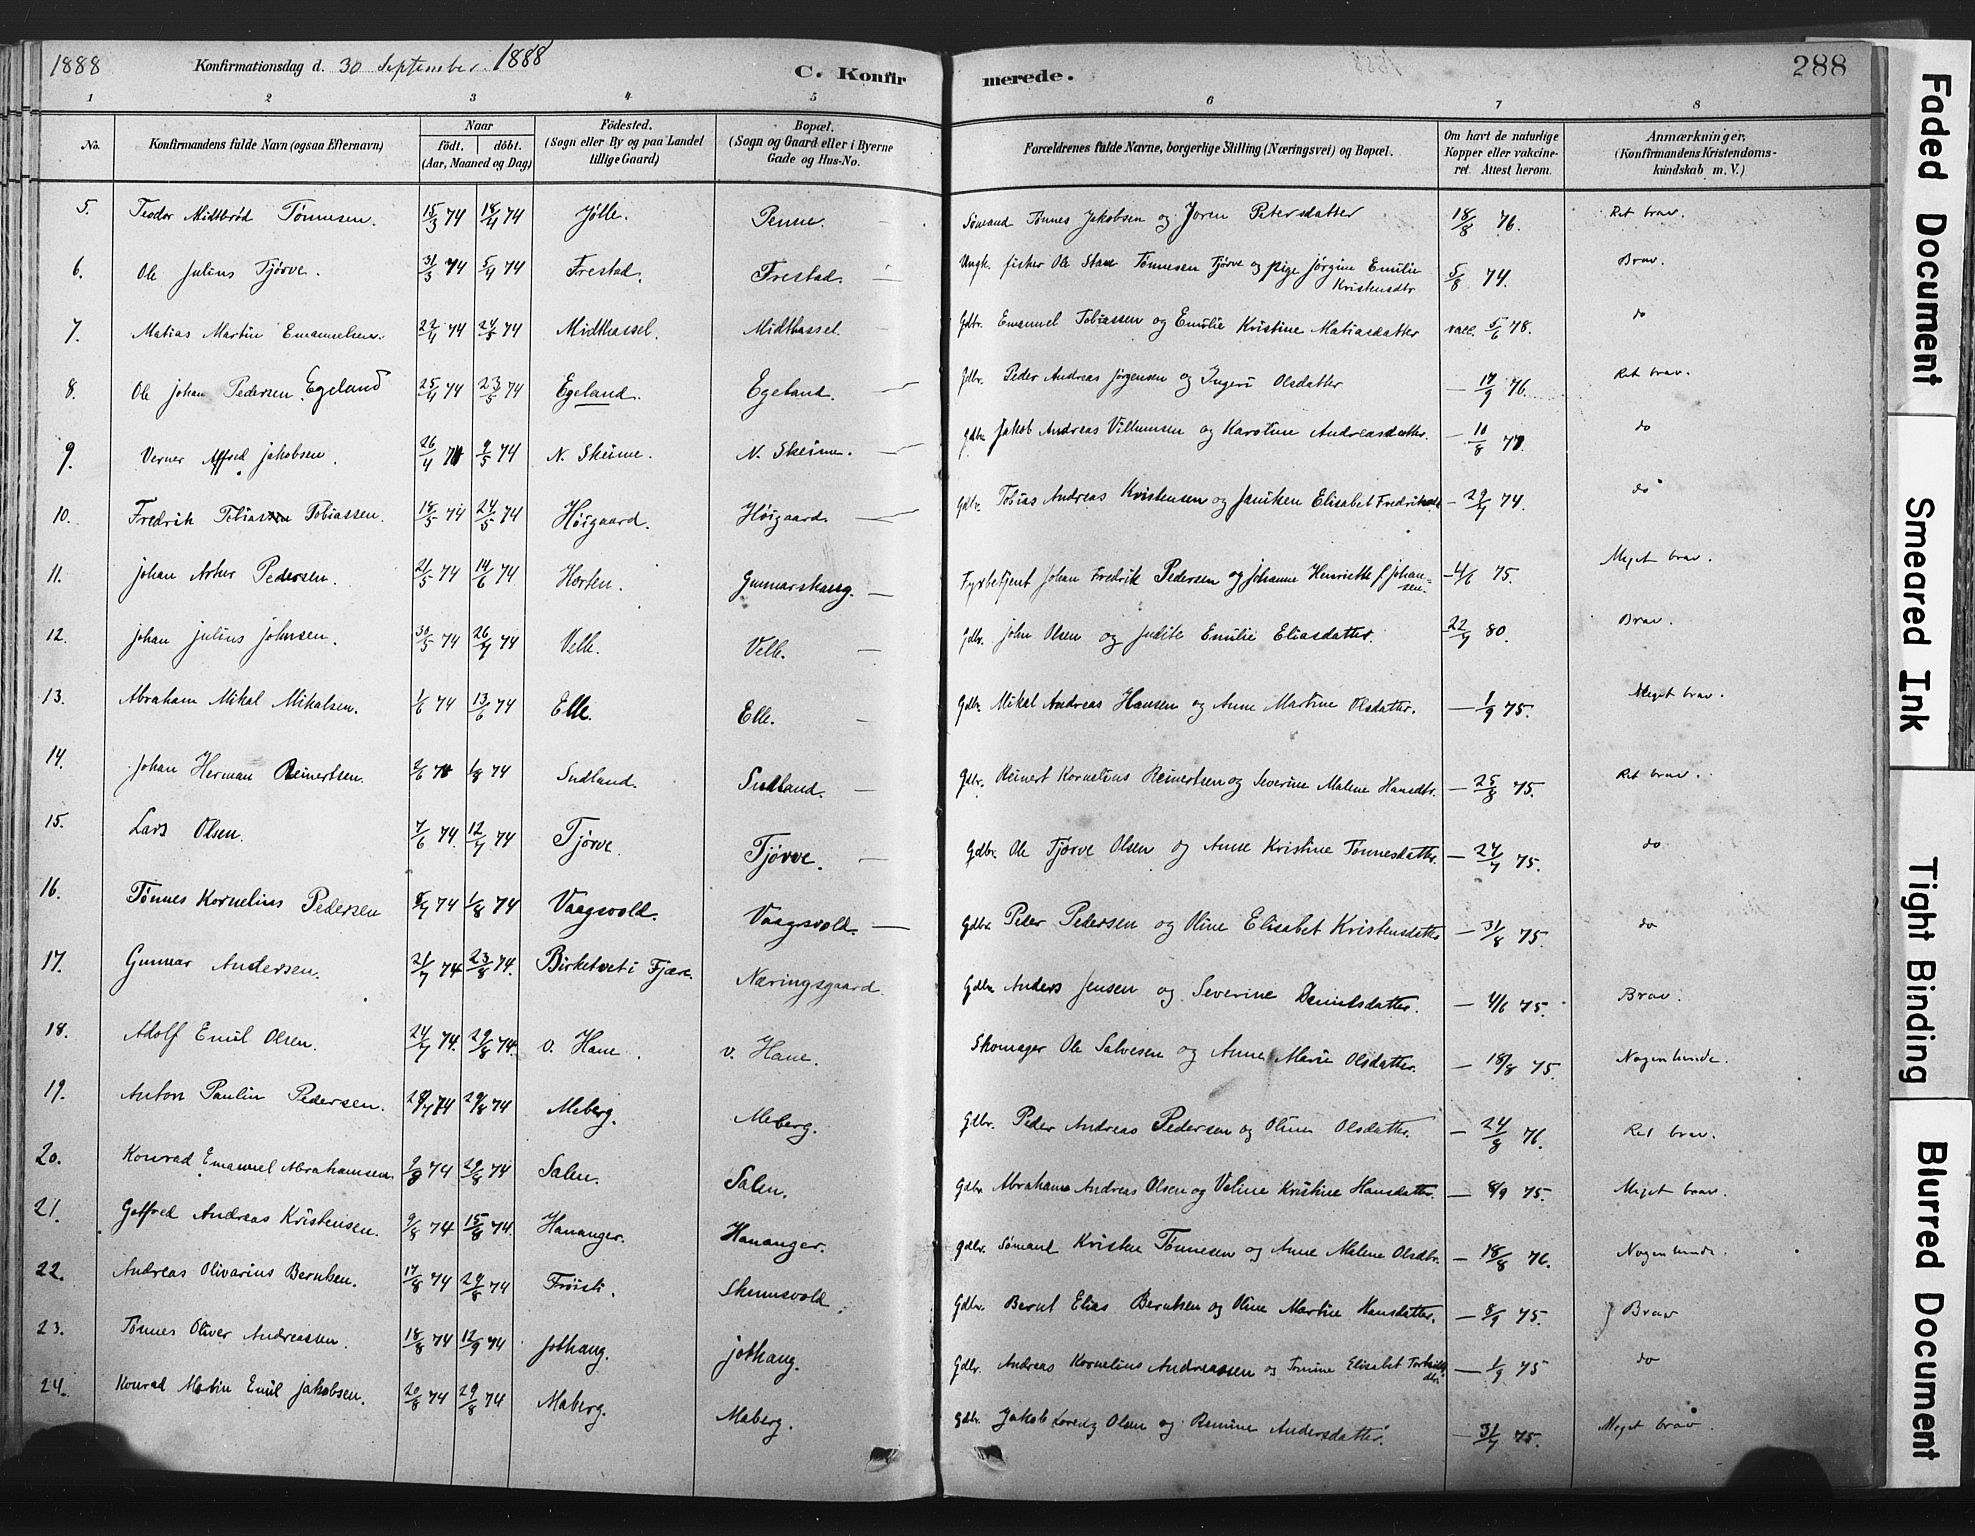 1888 Konfirmationsdag d. 30 September 1888 C. Konfir merede. 288
1 2 3 4 5 6 7 8
No. Konfirmandens fulde Navn (ogsaa Efternavn) Naar født. døbt. (Aar, Maaned og Dag) Fødested. (Sogn eller By og paa Landet tillige Gaard) Bopæl. (Sogn og Gaard eller i Byerne Gade og Hus-No. Forældrenes fulde Navne, borgerlige Stilling (Næringsvei) og Bopæl. Om havt de naturlige Kopper eller vakcineret. Attest herom. Anmærkninger, (Konfirmandens Kristendomskundskab m. V.)
5. Teodor Midtbrød Tønnesen. 15/3 74 18/4 74 Jølle. Penne. Sømand Tønnes Jakobsen og Joren Petersdatter 18/8 76. Ret brav.
6. Ole Julius Tjørve. 31/3 74 5/4 74 Frestad. Frestad. Ungk. fisker Ole Tønnesen Tjørve og pige Jørgine Emilie Kristensdtr 5/8 74. Brav.
7. Matias Martin Emanuelsen. 22/4 74 24/5 74 Midthassel. Midthassel. Gdbr. Emanuel Tobiassen og Emilie Kristine Matiasdatter vacc. 5/6 78. do
8. Ole Johan Pedersen Egeland 25/4 74 23/5 74 Egeland. Egeland. Gdbr. Peder Andreas Jørgensen og Ingeri Olsdatter — 17/9 76. Ret brav.
9. Verner Alfred Jakobsen. 26/4 74 9/5 74 N. Skeime. N. Skeime. Gdbr. Jakob Andreas Villumsen og Karoline Andreasdatter. — 10/8 77. do
10. Fredrik Tobiassen. 18/5 74 24/5 74 Høigaard. Høigaard. Gdbr. Tobias Andreas Kristensen og Janiken Elisabet — 29/7 74. do
11. Johan Artur Pedersen. 21/5 74 14/6 74 Horten. Gunnarshaug. Fyrbetjent Johan Fredrik Pedersen og Johanne Henriette f. Johansen. — 4/6 75. Meget brav.
12. Johan Julius Johnsen. 30/5 74 26/7 74 Velle. Velle. Gdbr. John Olsen og Judite Emilie Eliasdatter. 22/7 80. Brav.
13. Abraham Mikal Mikalsen. 1/6 74 13/6 74 Elle. Elle. Gdbr. Mikal Andreas Hansen og Anne Martine Olsdatter. — 1/9 75. Meget brav.
14. Johan Herman Reinertsen. 2/6 74 1/8 74 Sudland. Sudland. Gdbr. Reinert Kornelius Reinertsen og Severine Malene Hansdtr. — 25/8 75. Ret brav.
15. Lars Olsen. 7/6 74 12/7 74 Tjørve. Tjørve. Gdbr. Ole Tjørve Olsen og Anne Kristine Tønnesdatter. — 24/7 75. do
16. Tønnes Kornelius Pedersen 5/7 74 1/8 74 Vaagsvold. Vaagsvold. Gdbr. Peder Pedersen og Oline Elisabet Kristensdatter — 31/8 75. do
17. Gunnar Andersen. 21/7 74 23/8 74. Birketvet i Fjære. Næringsgaard. Gdbr. Anders Jensen og Severine Danielsdatter. — 4/6 75. Brav.
18. Adolf Emil Olsen. 24/7 74. 29/8 74. v. Hane. v. Hane. Skomager Ole Salvesen og Anne Marie Olsdatter. — 18/8 75. Nogenlunde.
19. Anton Paulin Pedersen. 28/7 74 29/8 74 Meberg. Meberg. Gdbr. Peder Andreas Pedersen og Oline Olsdatter. — 24/8 76. Ret brav.
20. Konrad Emanuel Abrahamsen. 2/8 74 29/8 74 Salen. Salen. Gdbr. Abraham Andreas Olsen og Valine Kristine Hansdatter. — 8/9 75. Meget brav.
21. Gotfred Andreas Kristensen. 9/8 74 15/8 74. Hananger. Hananger. Gdbr. Sømand Kristen Tønnesen og Anne Malene Olsdtr. — 18/8 76. Nogenlunde.
22. Andreas Olivarius Berntsen. 17/8 74 29/8 74 Frøisti. Skeimsvold. Gdbr. Bernt Elias Berntsen og Oline Martine Hansdatter. — 8/9 75. Brav
23. Tønnes Oliver Andreassen. 18/8 74 12/9 74 Jøthaug. Jøthaug. Gdbr. Andreas Kornelius Andreassen og Tomine Elisabet — 1/9 75 do
24. Konrad Martin Emil Jakobsen. 20/8 74 29/8 74 Maberg. Maberg. Gdbr. Jakob Lorentz Olsen og Andersdatter. — 31/7 75. Meget brav
Faded Document
Smeared Ink
Tight Binding
Blurred Document